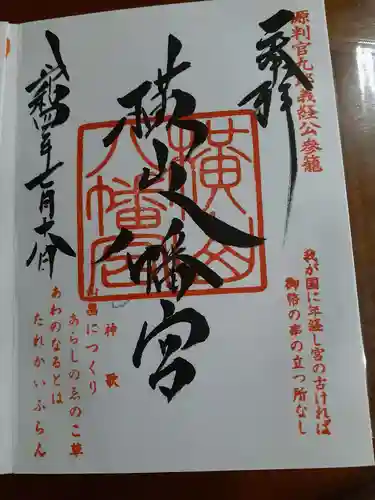 源判官九郎義経公参籠
奉拝
我が国に年経し宮の古ければ
御幣の串の立つ所なし
横山八幡宮
横山
八幡宮
神歌
山畠につくり
あらしのゑのこ草
あわのなるとは
たれかいふらん
令和四年七月十八日